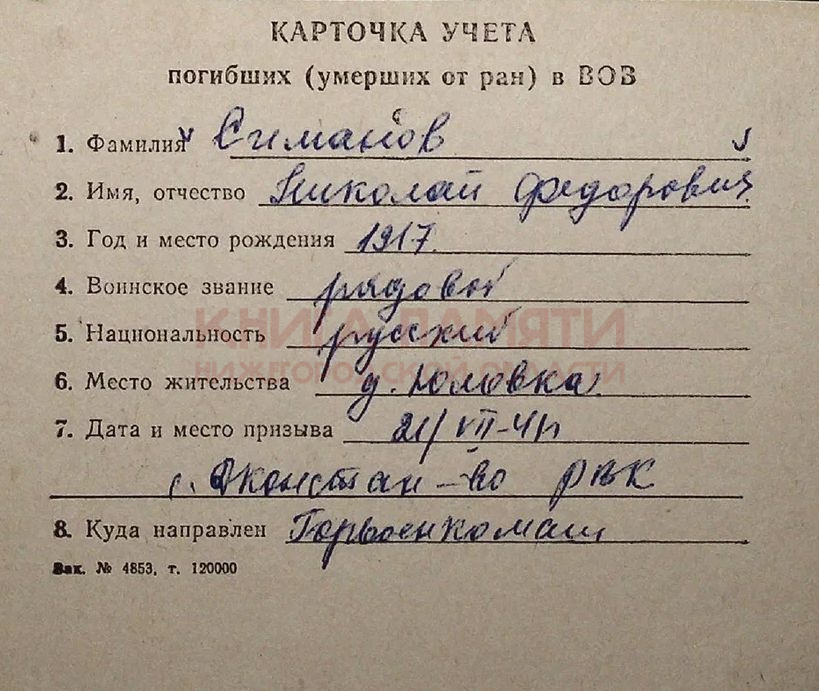 КАРТОЧКА УЧЕТА
погибших (умерших от ран) в ВОВ
1. Фамилия Симанов
2. Имя, отчество Николай Федорович
3. Год и место рождения 1917
4. Воинское звание рядовой
5. Национальность русский
КНИГА ПАМЯТИ
НИЖЕГОРОДСКОЙ ОБЛАСТИ
6. Место жительства д. Юловка
7. Дата и место призыва 21/VII-41
с. Дконстан-во РВК
8. Куда направлен Горвоенкомат
Зак. № 4853, т. 120000